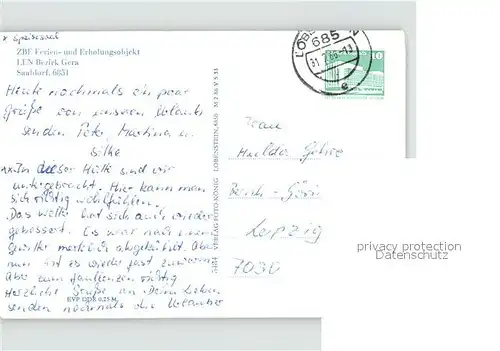 * Speisesaal
ZBE Ferien- und Erholungsobjekt
LEN Bezirk Gera
Saaldorf, 6851
Heute nochmals ein paar
Grüße von unserem Urlaub
senden Peter, Martina u.
Silke
**In dieser Hütte sind wir
untergebracht. Hier kann man
sich richtig wohlfühlen.
Das Wetter hat sich auch wieder
gebessert. Es war nach einem
Gewitter merklich abgekühlt. Aber
nun ist es wieder fast zu warm
Aber zum faulenzen richtig
Herzliche Grüße an Deine Lieben
senden nochmals die Urlauber
EVP DDR 0,25 M
VERLAG FOTO-KÖNIG LOBENSTEIN, 6850
685
10
Frau
Leipzig
7030
privacy protection
Datenschutz